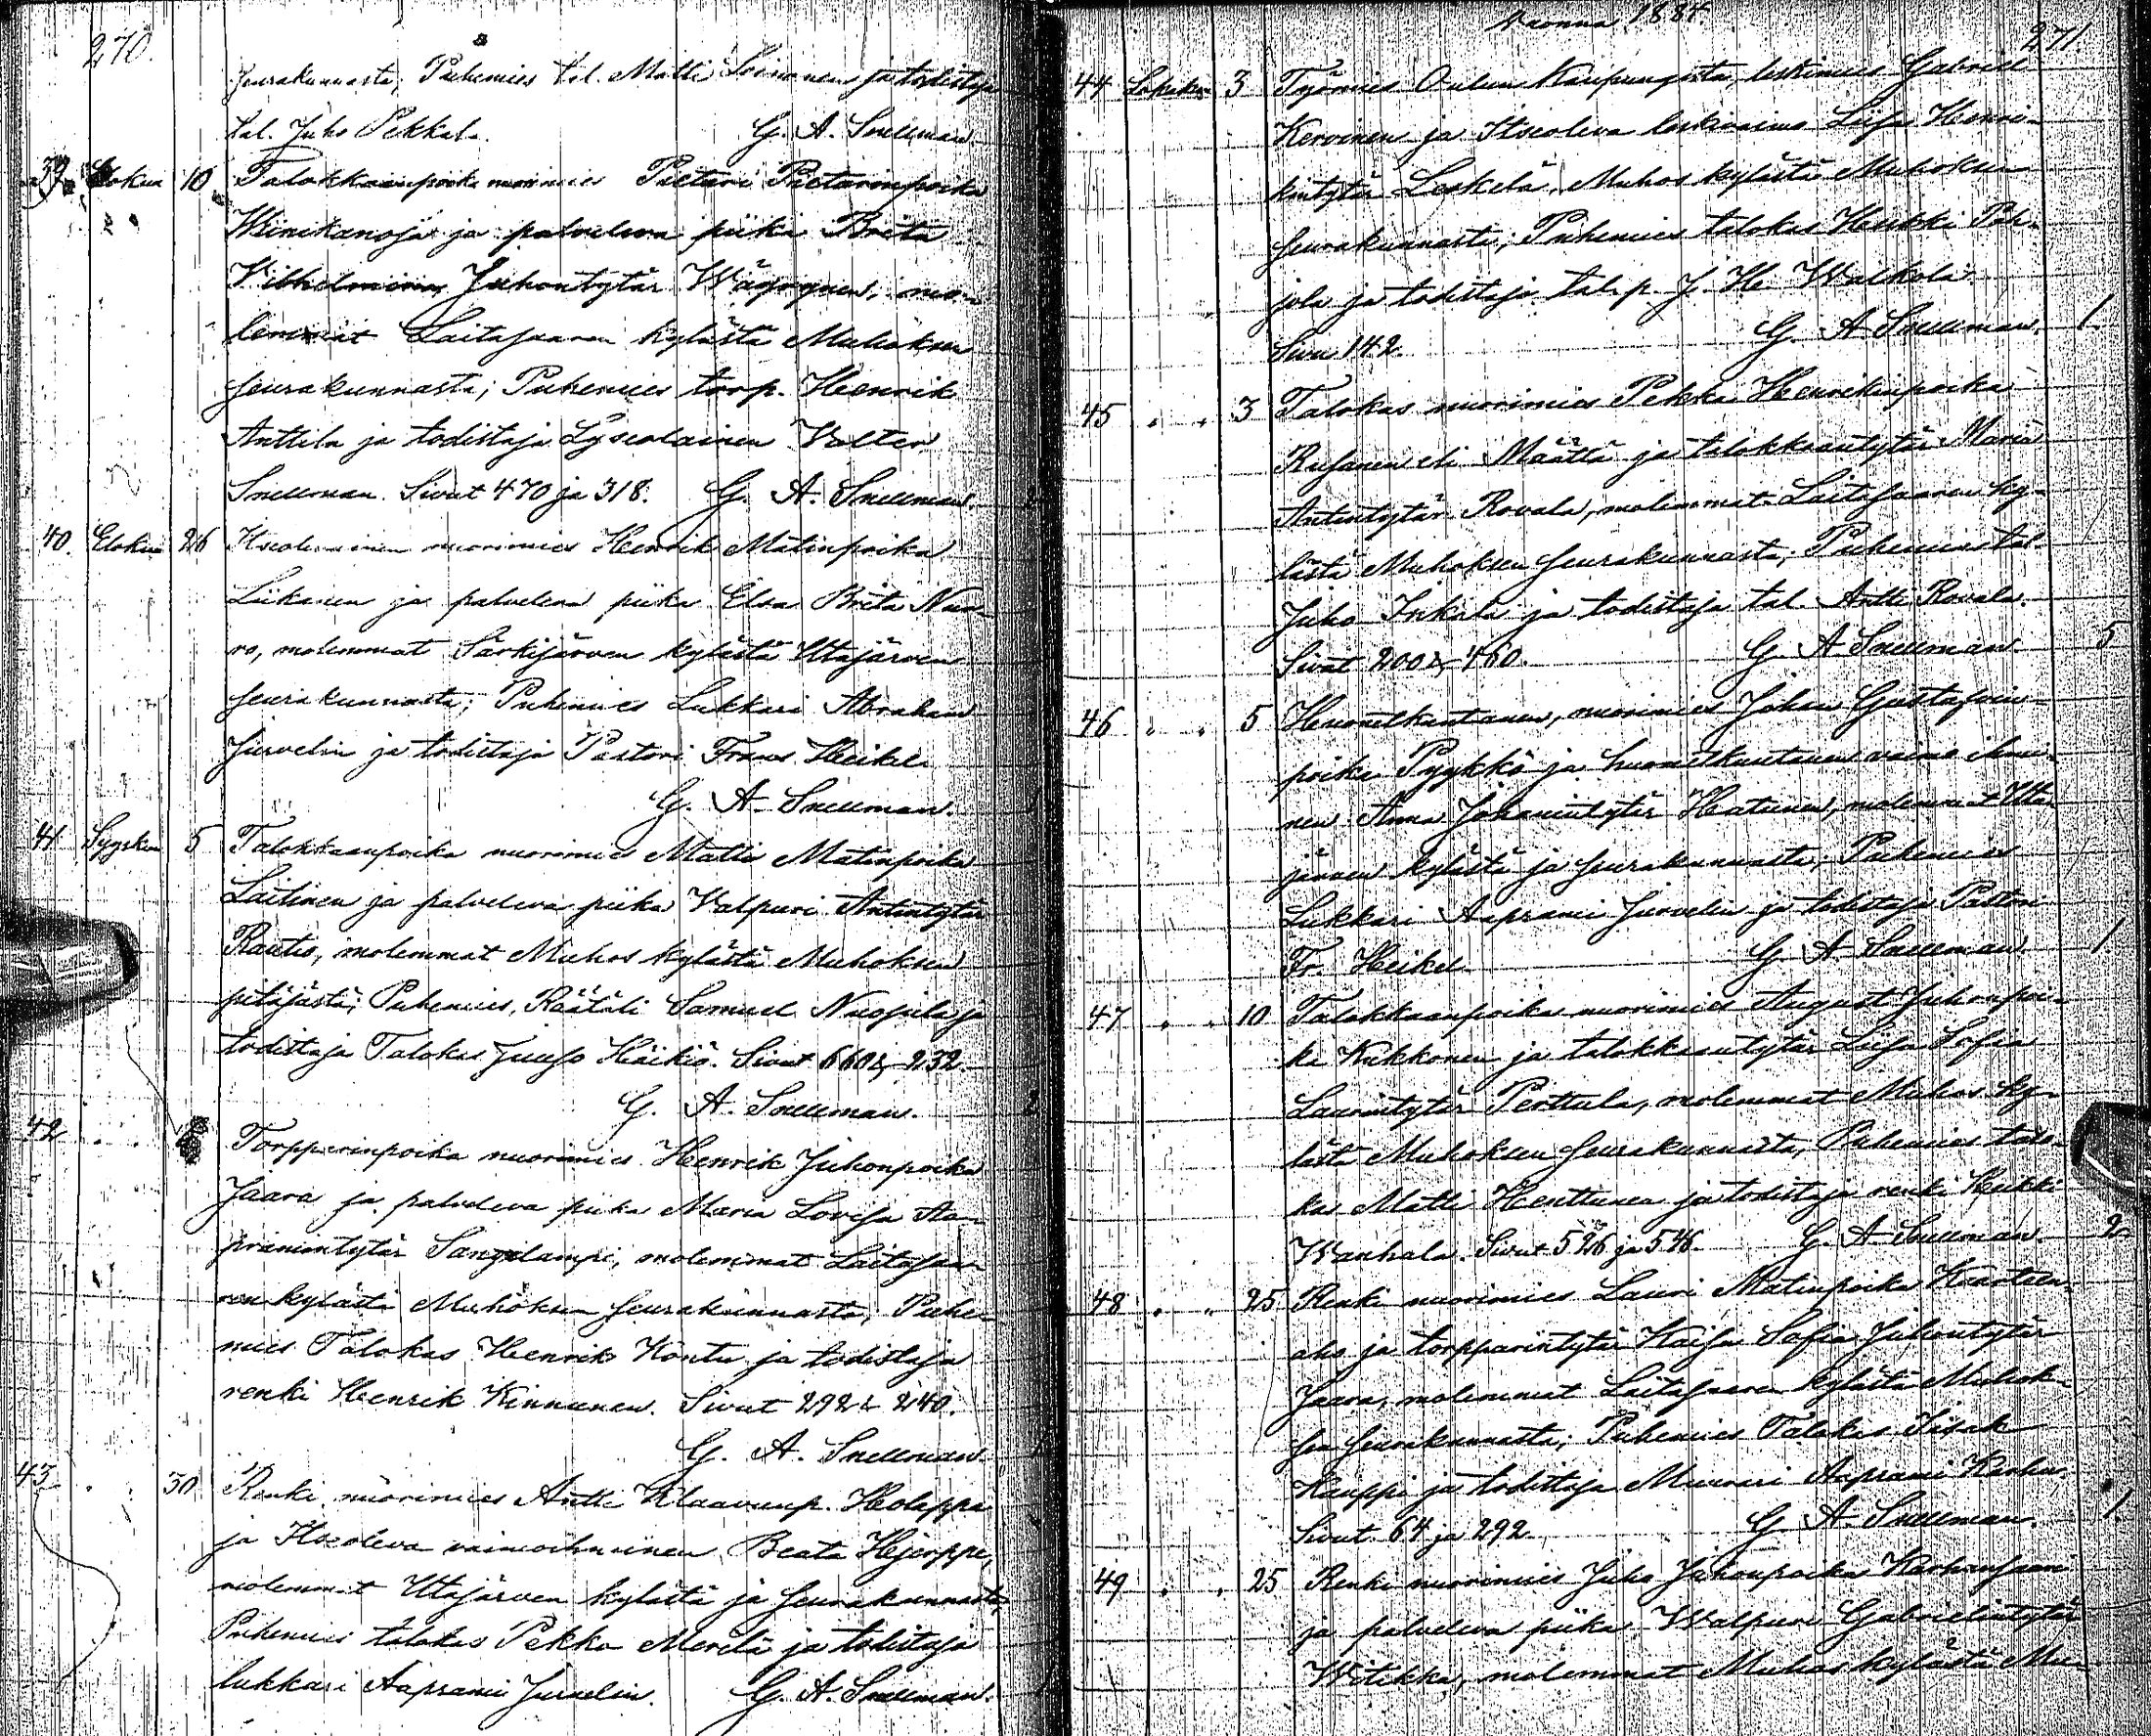 270.
seurakunnasta; Puhemies tal. Matti Soinanen ja todistaja
tal. Juho Pekkala. G. A. Snellman.
39 Elokuu 10 Talokkaanpoika nuorimies Pietari Pietarinpoika
Kiinikanoja ja palveleva piika Brita
Vilhelmiina Juhontytär Wäyrynen, mo-
lemmat Laitasaaren kylästä Muhoksen
seurakunnasta; Puhemies torp. Henrik
Anttila ja todistaja Lyseolainen Valter
Snellman. Sivut 470 ja 318. G. A. Snellman. 2
40. Elokuu 26 Itseolevainen nuorimies Henrik Matinpoika
Liikanen ja palveleva piika Elsa Brita Nuo-
ro, molemmat Särkijärven kylästä Utajärven
seurakunnasta; Puhemies Lukkari Abraham
Jurvelin ja todistaja Pastori Frans Heikel.
G. A. Snellman.
41 Syysku 5 Talokkaanpoika nuorimies Matti Matinpoika
Laitinen ja palveleva piika Valpuri Antintytär
Rautio, molemmat Muhos kylästä Muhoksen
pitäjästä; Puhemies, Räätäli Samuel Nuojula ja
todistaja Talokas Juuso Häikiö. Sivut 660 & 232
G. A. Snellman. 2
42 Torpparinpoika nuorimies Henrik Juhonpoika
Jaara ja palveleva piika Maria Lovisa Aa-
pramintytär Sangilampi, molemmat Laitasaa-
ren kylästä Muhoksen seurakunnasta; Puhe-
mies Talokas Henrik Kontu ja todistaja
renki Henrik Kinnunen. Sivut 292 & 240.
G. A. Snellman.
43 30 Renki nuorimies Antti Klaavunp. Holappa
ja Itseoleva vaimoihminen Beata Hjerppe,
molemmat Utajärven kylästä ja seurakunnasta;
Puhemies talokas Pekka Merilä ja todistaja
lukkari Aaprami Jurvelin. G. A. Snellman.
Vuonna 1884. 271
44 Lokakuu 3 Työmies Oulun Kaupungista, leskimies Gabriel
Kervinen ja Itseoleva leskivaimo Liisa Henri-
kintytär Leskelä, Muhos kylästä Muhoksen
seurakunnasta; Puhemies talokas Heikki Poh-
jola ja todistaja talp. J. H. Walkola.
Sivu 142. G. A. Snellman. 1
45 " " 3 Talokas nuorimies Pekka Henrikinpoika
Rusanen eli Määttä ja talokkaantytär Maria
Antintytär Rovala, molemmat Laitasaaren ky-
lästä Muhoksen seurakunnasta; Puhemies tal.
Juho Inkala ja todistaja tal. Antti Rovala.
Sivut 200 & 460. G. A. Snellman. 5
46 " " 5 Huonetkuntanen, nuorimies Johan Gustafin-
poika Pyykkö ja huonetkuntanen vaimo ihmi-
nen Anna Johanintytär Hatunen, molemmat Uta-
järven kylästä ja seurakunnasta; Puhemies
Lukkari Aaprami Jurvelin ja todistaja Pastori
Fr. Heikel. G. A. Snellman. 1
47 " " 10 Talokkaanpoika nuorimies August Juhonpoi-
ka Kukkonen ja talokkaantytär Liisa Sofia
Laurintytär Perttula, molemmat Muhos ky-
lästä Muhoksen seurakunnasta, Puhemies talo-
kas Matti Henttunen ja todistaja renki Heikki
Wanhala. Sivut 526 ja 546. G. A. Snellman 2
48 " " 25 Renki nuorimies Lauri Matinpoika Kaarteen-
aho ja torpparintytär Kaisa Sofia Juhontytär
Jaara, molemmat Laitasaaren kylästä Muhok-
sen seurakunnasta; Puhemies Talokas Iisak
Kauppi ja todistaja Muurari Aaprami Karhu.
Sivut 64 ja 292. G. A. Snellman. 1.
49 " " 25 Renki nuorimies Juho Juhonpoika Karhunsaari
ja palveleva piika Walpuri Gabrielintytär
Witikka, molemmat Muhos kylästä Mu-